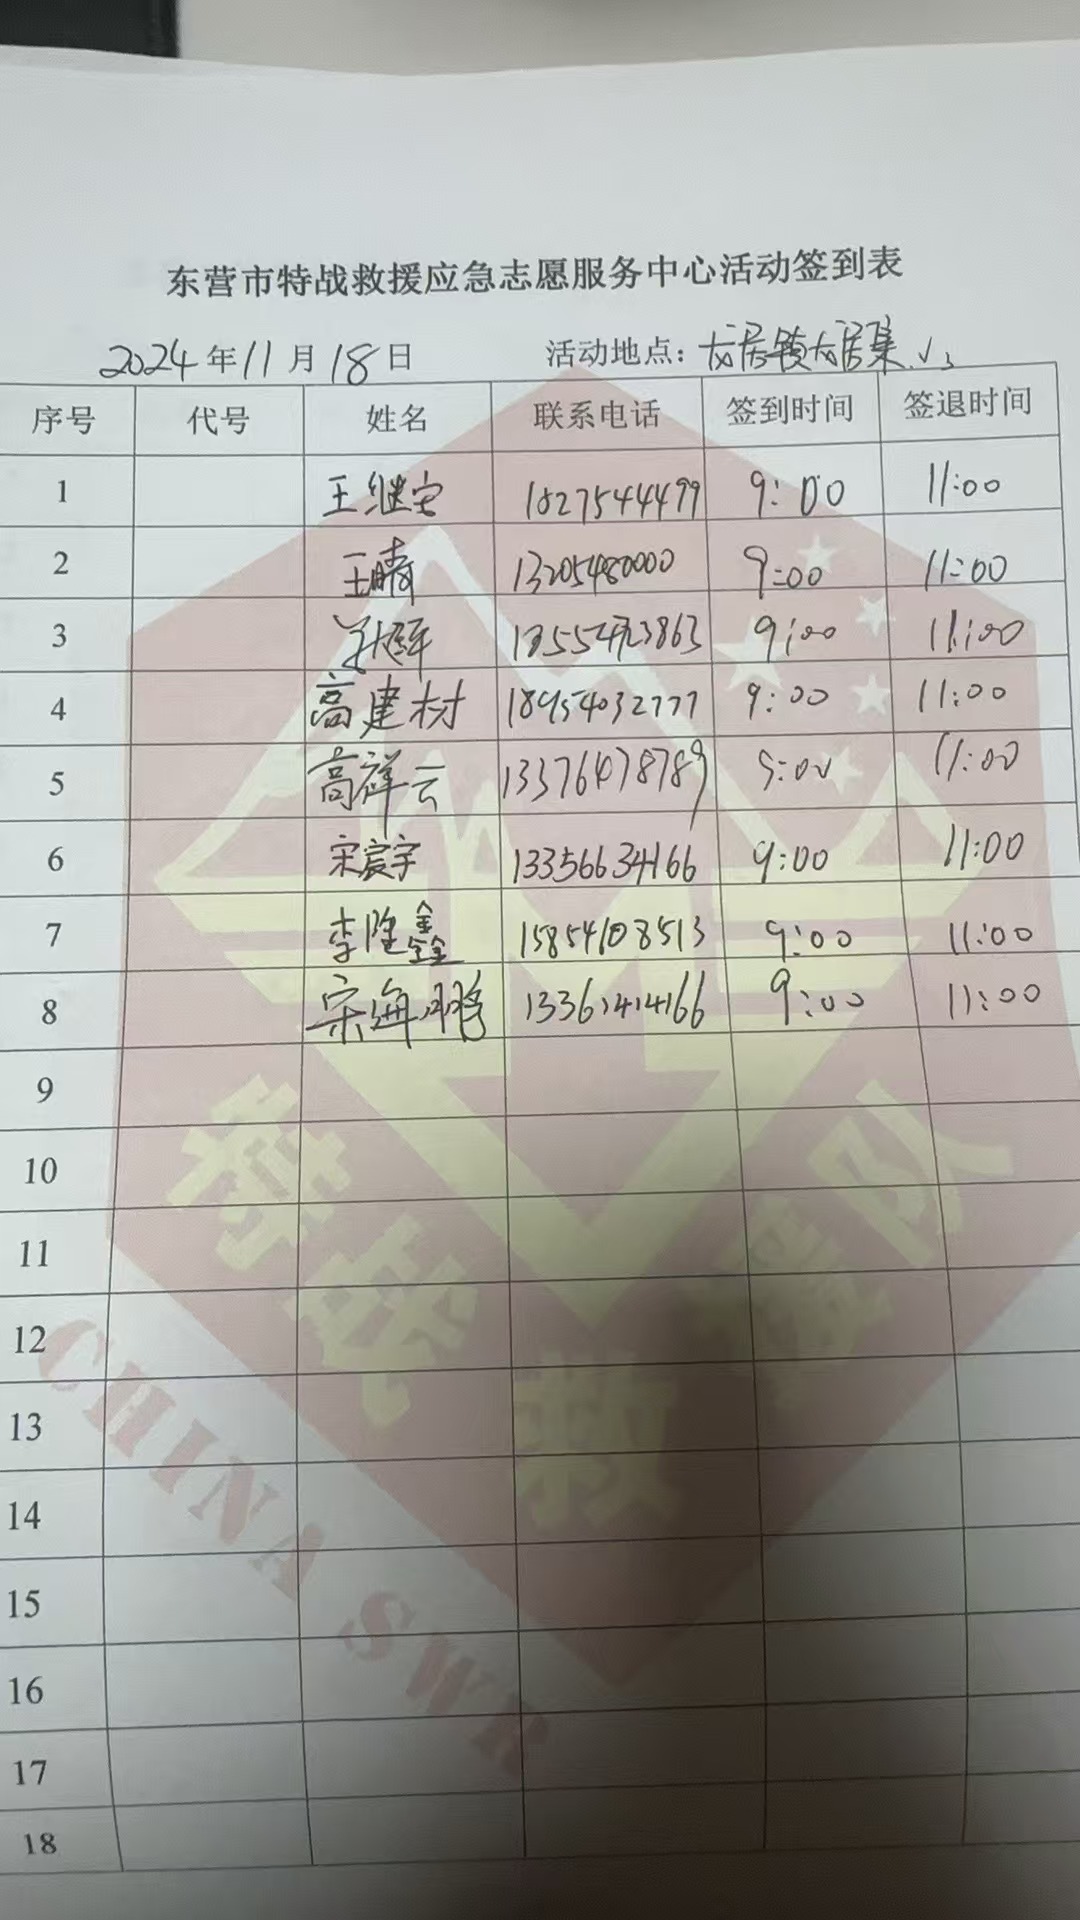 东营市特战救援应急志愿服务中心活动签到表
2024年11月18日 活动地点：龙居镇龙居集
序号 代号 姓名 联系电话 签到时间 签退时间
1 王继宝 18275444499 9:00 11:00
2 王晴 13205480000 9:00 11:00
3 9:00 11:00
4 高建材 18954032777 9:00 11:00
5 高祥云 13376478789 9:00 11:00
6 宋宸宇 13356634166 9:00 11:00
7 李隆鑫 15854108513 9:00 11:00
8 宋海鹏 13361414166 9:00 11:00
9
10
11
12
13
14
15
16
17
18
特战救援队
CHINA SWR